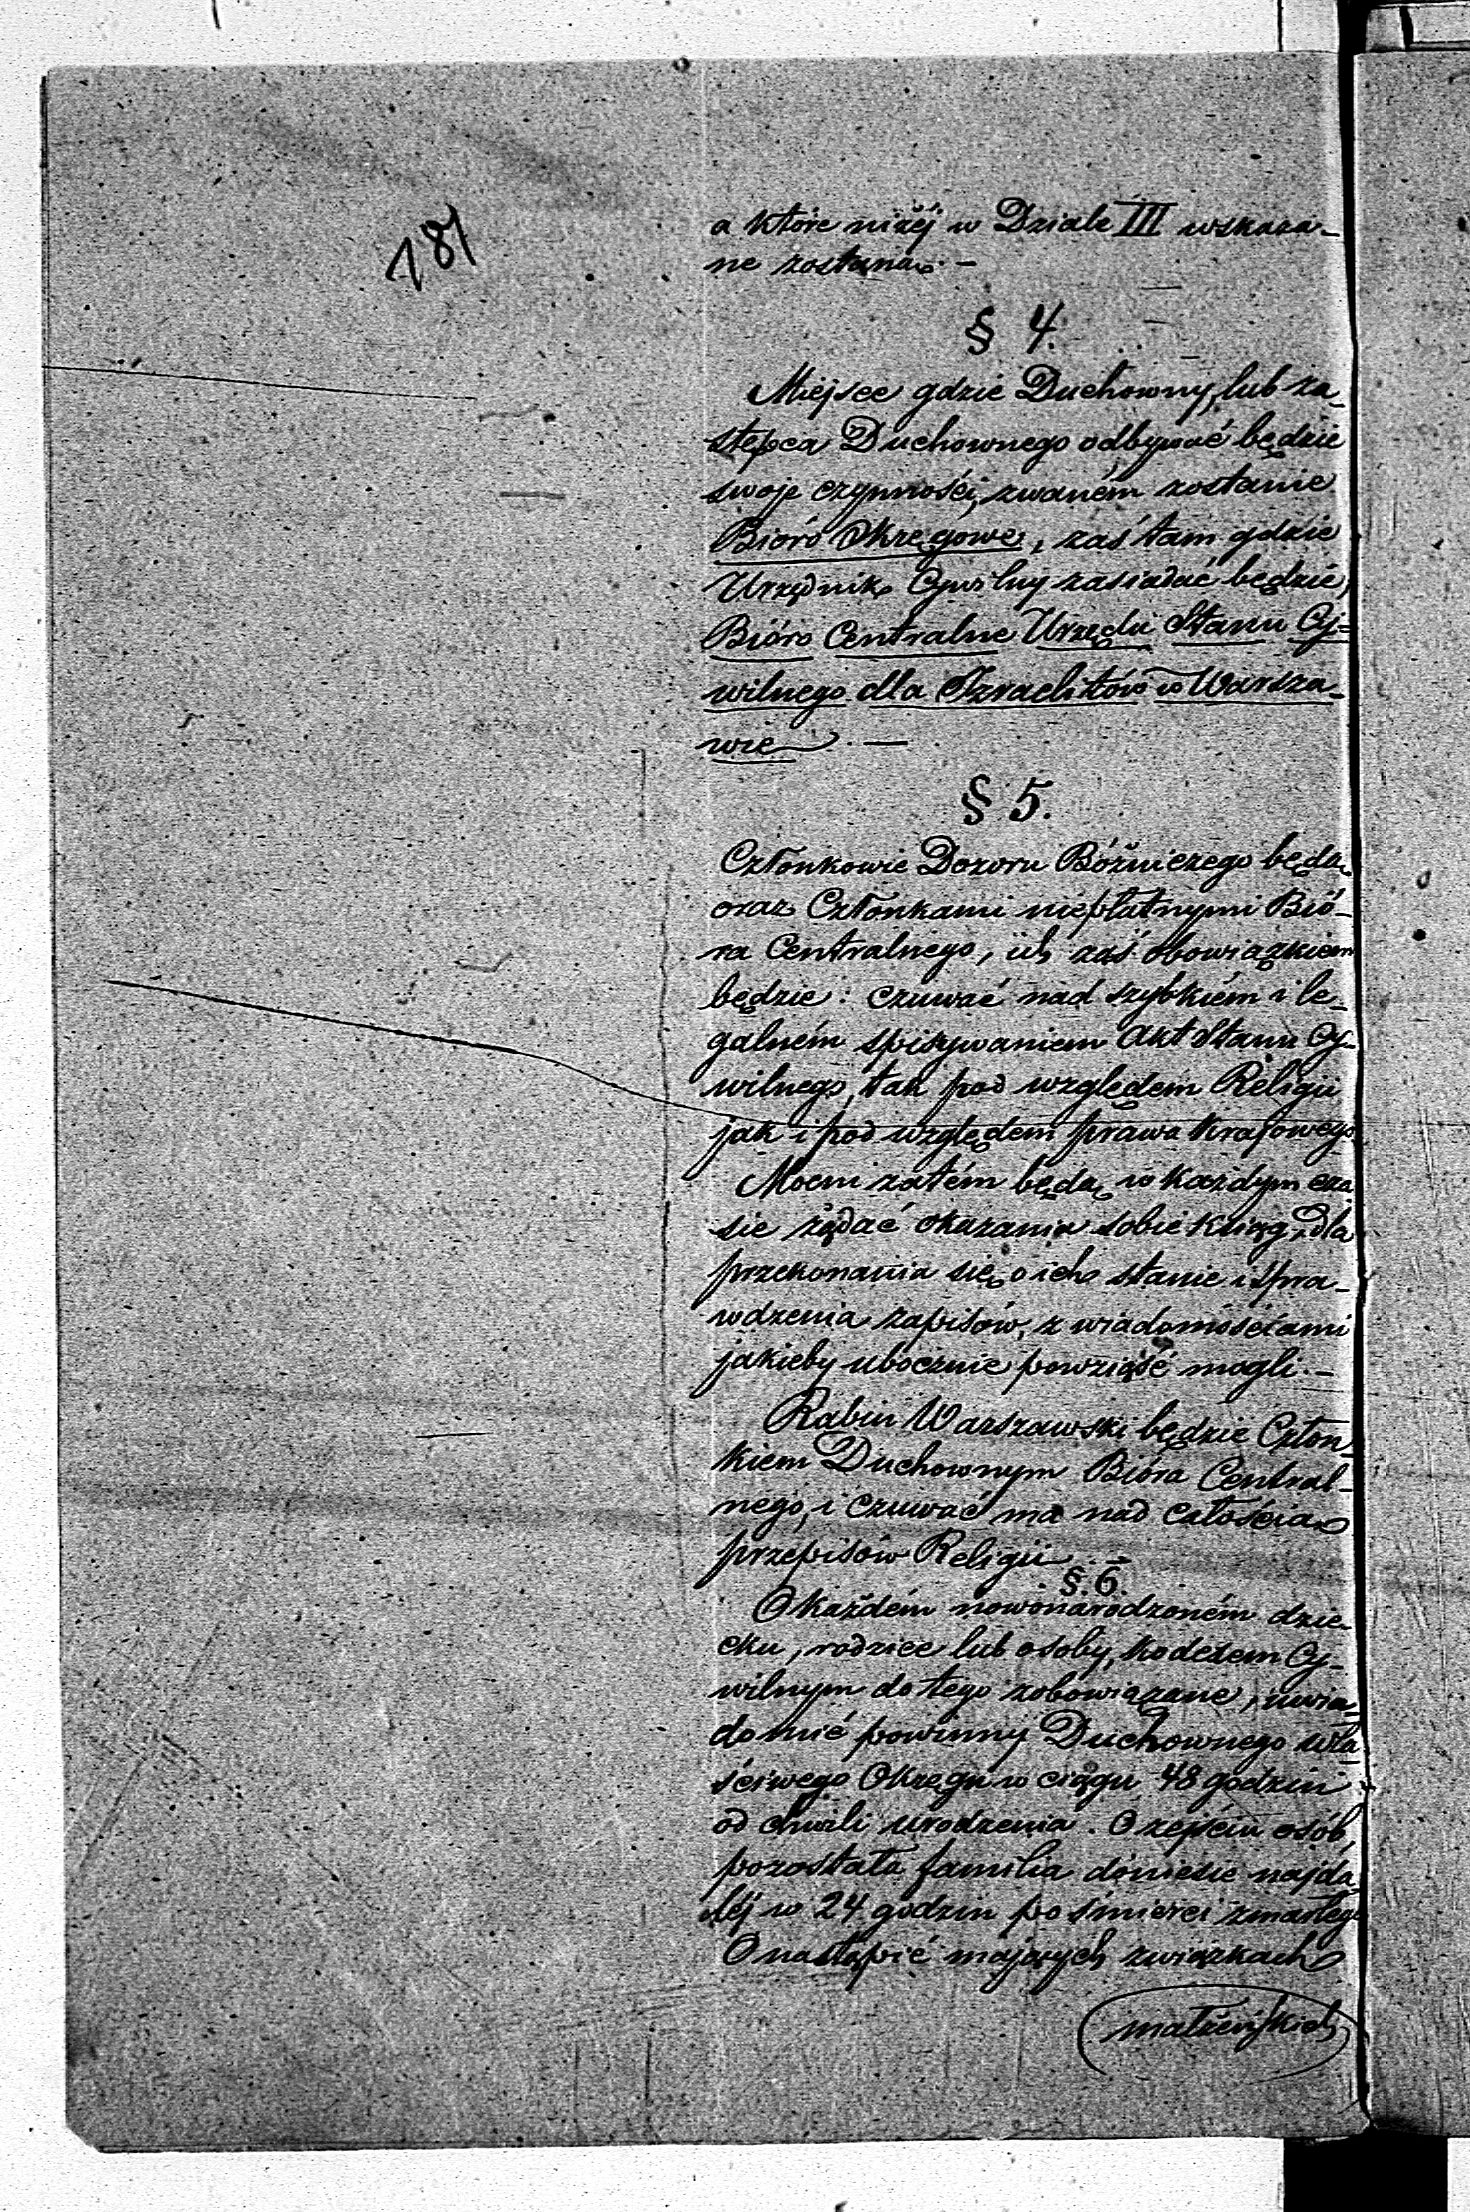 181
a które niżéj w Dziale III wskaza-
ne zostaną. -
§ 4.
Miejsce gdzie Duchowny, lub za-
stępca Duchownego odbywać będzie
swoje czynności, zwaném zostanie
Bióro Okręgowe, zaś tam gdzie
Urzędnik Cywilny zasiadać będzie,
Bióro Centralne Urzędu Stanu Cy=
wilnego dla Izraelitów w Warsza-
wie. -
§ 5.
Członkowie Dozoru Bóżniczego będą
oraz Członkami niepłatnymi Bió-
ra Centralnego, ich zaś obowiązkiem
będzie: czuwać nad szybkiém i le-
galném spisywaniem Akt Stanu Cy-
wilnego, tak pod względem Religii
jak i pod względem prawa Krajowego.
Mocni zatém będą w każdym cza-
sie żądać okazania sobie Ksiąg, dla
przekonania się o ich stanie i spra-
wdzenia zapisów, z wiadomościami
jakieby ubocznie powziąść mogli. -
Rabin Warszawski będzie Człon-
kiem Duchownym Bióra Central-
nego, i czuwać ma nad całością
przepisów Religii. -
§. 6.
O każdém nowonarodzoném dzie-
cku, rodzice lub osoby, Kodexem Cy-
wilnym do tego zobowiązane, uwia-
domić powinny Duchownego wła-
ściwego Okręgu w ciągu 48 godzin
od chwili urodzenia. O zejściu osób,
pozostała familia doniesie najda-
léj w 24 godzin po śmierci zmarłego
O nastąpić mających związkach
małżeńskich